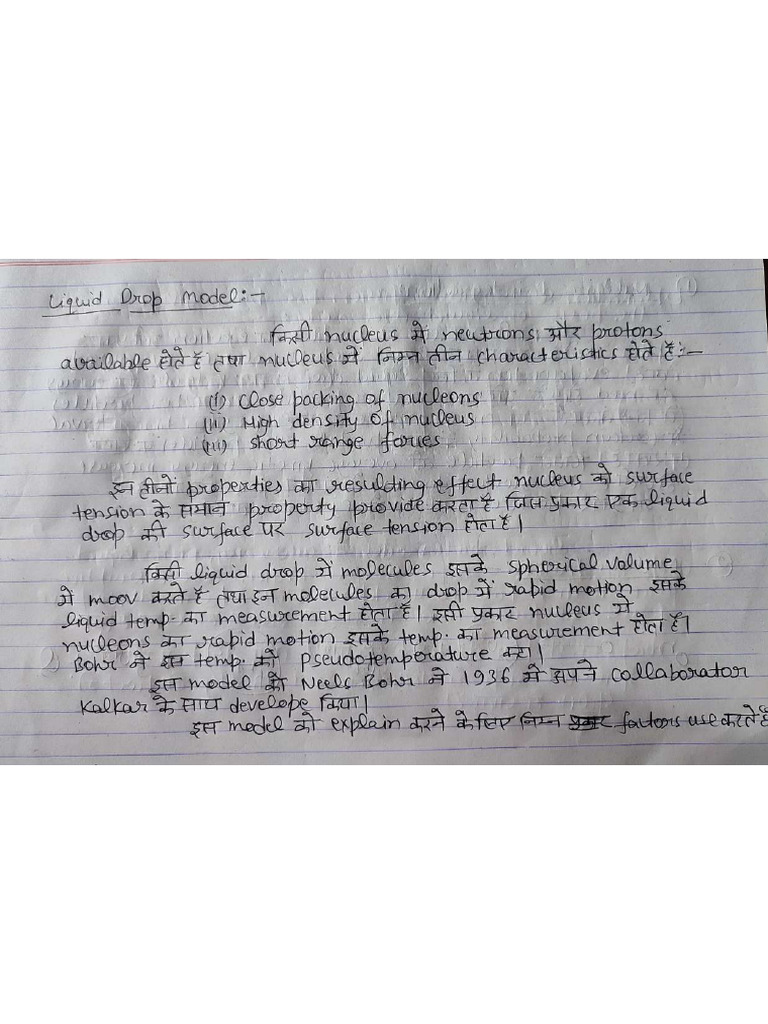 Liquid Drop Model:-
किसी nucleus में neutrons और protons
available होते हैं तथा nucleus में निम्न तीन characteristics होते हैं:-
(i) Close packing of nucleons
(ii) High density of nucleus
(iii) short range forces
इन तीनों properties का resulding effect nucleus को surface
tension के समान property provide करता है जिस प्रकार एक liquid
drop की surface पर surface tension होता है।
किसी liquid drop में molecules इसके spherical volume
में moov करते हैं तथा इन molecules का drop में rapid motion इसके
liquid temp. का measurement होता है। इसी प्रकार nucleus में
nucleons का rapid motion इसके temp. का measurement होता है।
Bohr ने इस temp. को pseudotemperature कहा।
इस model को Neels Bohr ने 1936 में अपने collaborator
Kalkar के साथ develope किया।
इस model को explain करने के लिए निम्न factors use करते हैं